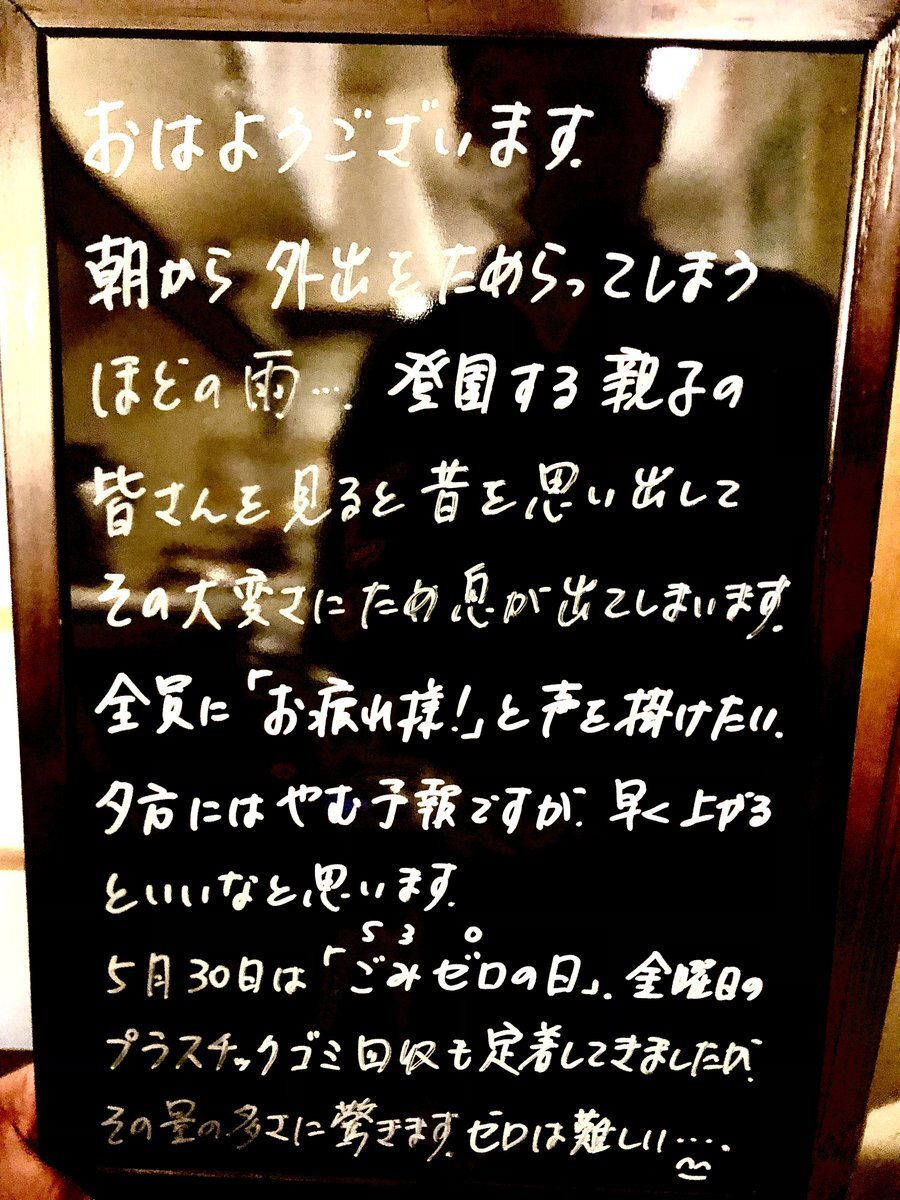 おはようございます.
朝から 外出をためらってしまう
ほどの雨…. 登園する親子の
皆さんを見ると昔を思い出して
その大変さにため息が出てしまいます.
全員に「お疲れ様!」と声を掛けたい.
夕方にはやむ予報ですが、早く上がる
といいなと思います.
5 3 0
5月30日は「ごみゼロの日」. 金曜日の
プラスチックゴミ回収も定着してきましたが、
その量の多さに驚きます. ゼロは難しい….